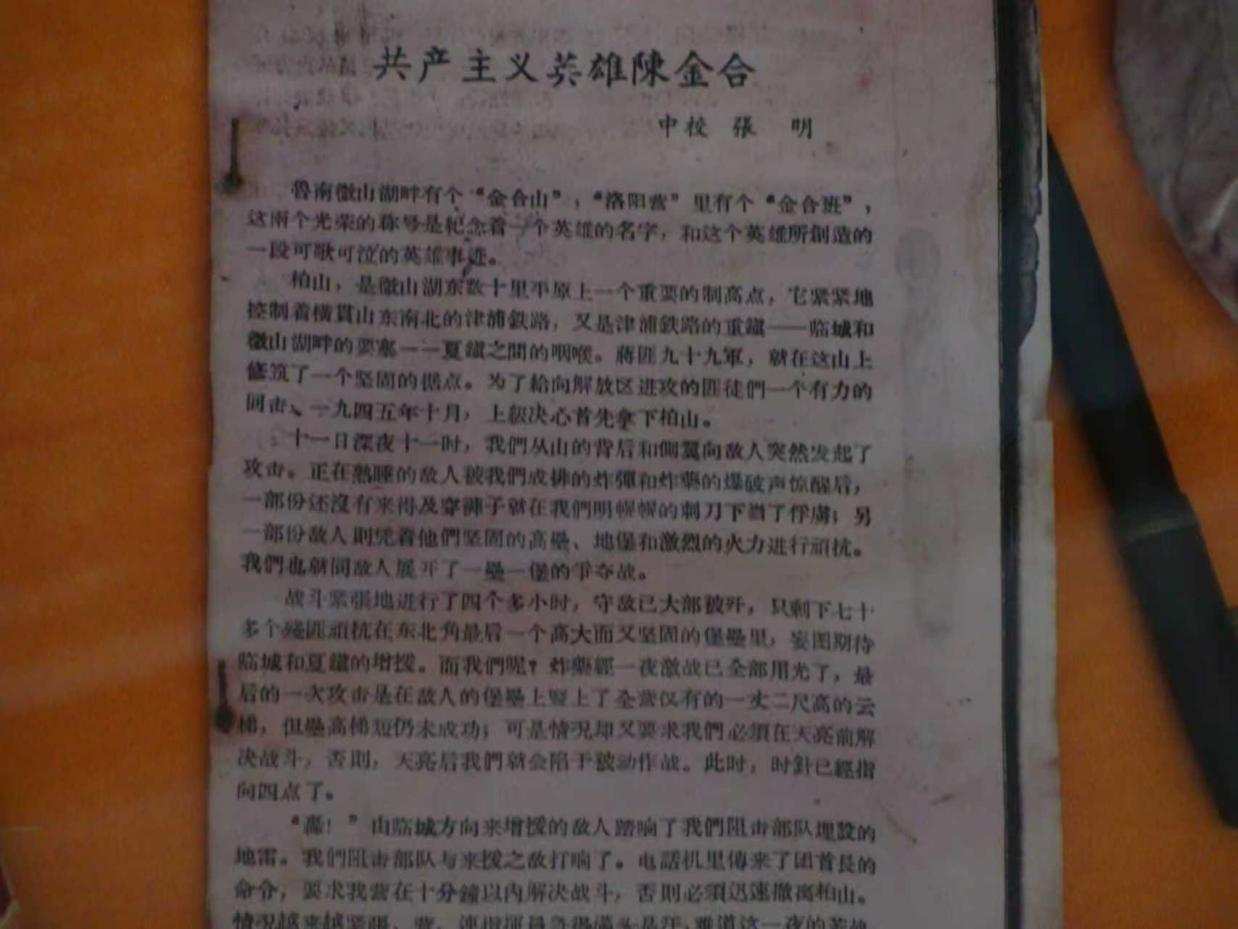 共产主义英雄陳金合
中校 張 明
魯南微山湖畔有个“金合山”，“洛阳营”里有个“金合班”，
这兩个光荣的称号是紀念着一个英雄的名字，和这个英雄所創造的
一段可歌可泣的英雄事迹。
柏山，是微山湖东数十里平原上一个重要的制高点，它紧紧地
控制着橫貫山东南北的津浦鉄路，又是津浦鉄路的重鎮——临城和
微山湖畔的要塞——夏鎮之間的咽喉。蔣匪九十九軍，就在这山上
修筑了一个坚固的据点。为了給向解放区进攻的匪徒們一个有力的
回击、一九四五年十月，上級决心首先拿下柏山。
十一日深夜十一时，我們从山的背后和側翼向敌人突然发起了
攻击。正在熟睡的敌人被我們成排的炸彈和炸藥的爆破声惊醒后，
一部份还沒有来得及穿褲子就在我們明幌幌的刺刀下当了俘虜；另
一部份敌人則凭着他們坚固的高壘、地堡和激烈的火力进行頑抗。
我們也就同敌人展开了一壘一堡的爭夺战。
战斗紧張地进行了四个多小时，守敌已大部被歼，只剩下七十
多个殘匪頑抗在东北角最后一个高大而又坚固的堡壘里，妄图期待
临城和夏鎮的增援。而我們呢？炸藥經一夜激战已全部用光了，最
后的一次攻击是在敌人的堡壘上竪上了全营仅有的一丈二尺高的云
梯，但壘高梯短仍未成功；可是情况却又要求我們必須在天亮前解
决战斗，否則，天亮后我們就会陷于被动作战。此时，时針已經指
向四点了。
“轟！”由临城方向来增援的敌人踏响了我們阻击部队埋設的
地雷。我們阻击部队与来援之敌打响了。电話机里傳来了团首長的
命令，要求我营在十分鐘以內解决战斗，否則必須迅速撤离柏山。
情况越来越紧張，营、連指揮員急得滿头是汗，难道这一夜的